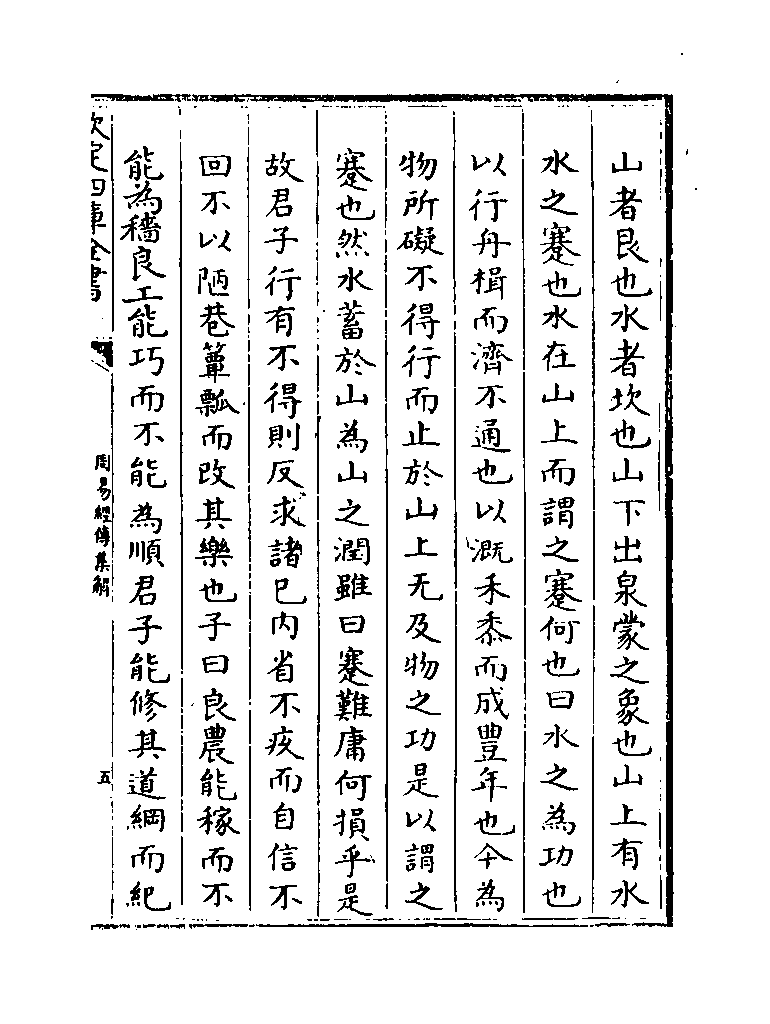 山者艮也水者坎也山下出泉蒙之象也山上有水
水之蹇也水在山上而謂之蹇何也曰水之為功也
以行舟楫而濟不通也以溉禾黍而成豐年也今為
物所礙不得行而止於山上无及物之功是以謂之
蹇也然水蓄於山為山之潤雖曰蹇難庸何損乎是
故君子行有不得則反求諸已内省不疚而自信不
回不以陋巷簞瓢而改其樂也子曰良農能稼而不
能為穡良工能巧而不能為順君子能修其道綱而紀
欽定四庫全書
周易經傳集解
五